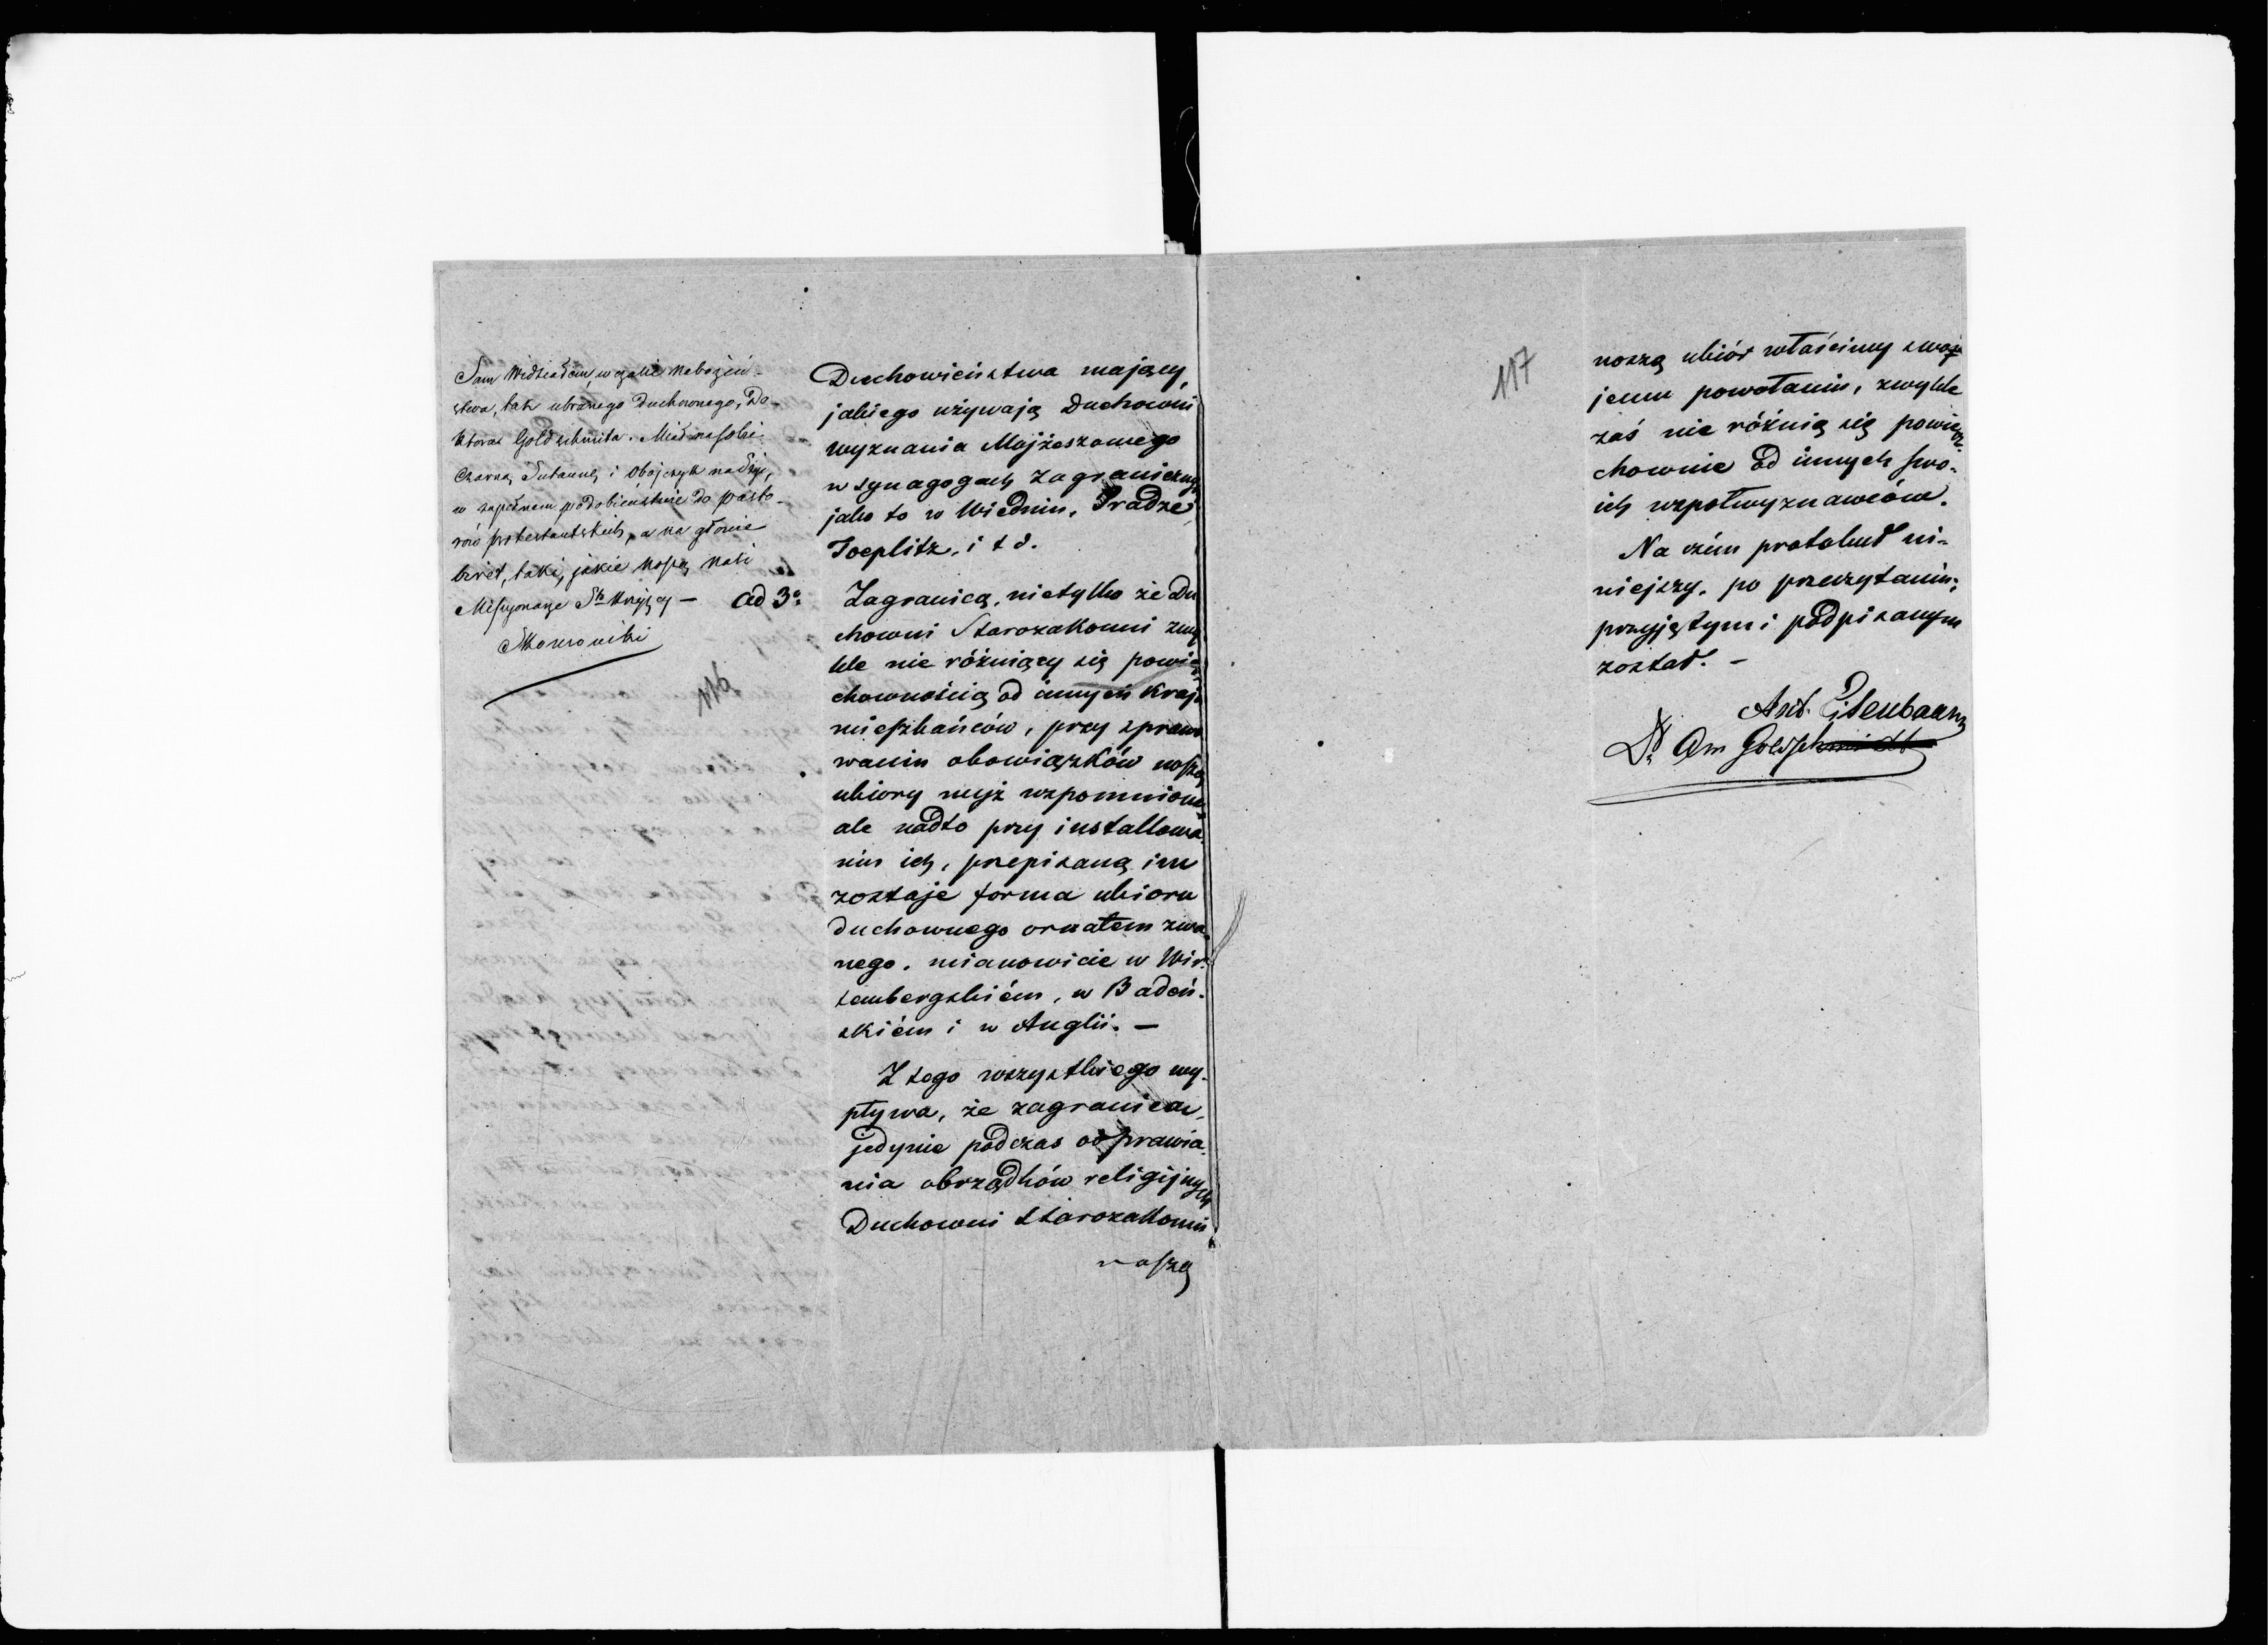 Sam Widziałem, w czasie nabożeń-
stwa, tak ubranego Duchownego, Do-
ktora Goldschmita. Miał na sobie
Czarną Sutannę i Obojczyk na Szyi,
w zupełnem podobieństwie do pasto-
rów protestantskich, a na głowie
biret, taki, jakie noszą nasi
Missyonarze Sgo Krzyża —
116
Duchowieństwa mający,
jakiego używają Duchowni
wyznania Mojżeszowego
w synagogach zagraniczny
jako to w Wiedniu, Pradze
Toeplitz, i t d.
ad 3o
Zagranicą, nietylko że Du
chowni Starozakonni zwy
kle nie różniący się powie
chownością od innych Kraju
mieszkańców, przy sprawo
waniu obowiązków noszą
ubiory wyż wzpomnione
ale nadto przy installowa
niu ich, przepisaną im
zostaje forma ubioru
duchownego ornatem zwa-
nego, mianowicie w Wir-
tembergskiém, w Badeń-
skiém i w Anglii. —
Z tego wszystkiego wy-
pływa, że zagranicą,
jedynie podczas odprawia
nia obrządków religijnych
Duchowni Starozakonni
noszą
117
noszą ubiór właściwy swo
jemu powołaniu, zwykle
zaś nie różnią się powierz-
chownie od innych swo-
ich wzpółwyznawców.
Na czém protokuł ni-
niejszy, po przeczytaniu,
przyjętym i podpisanym
został. —
Ant. Eisenbaum
Dr. Am Goldschmidt